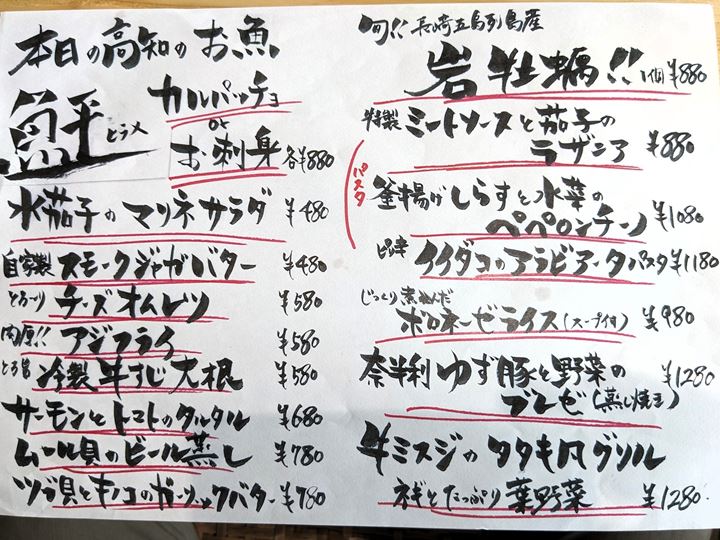 本日の高知のお魚
鮃 ヒラメ
カルパッチョ
or
お刺身 各¥880
水茄子のマリネサラダ ¥480
自家製 スモークジャガバター ¥480
とろ〜り チーズオムレツ ¥580
肉厚!! アジフライ ¥580
とろ旨 冷製牛すじ大根 ¥580
サーモンとトマトのタルタル ¥680
ムール貝のビール蒸し ¥780
ツブ貝とキノコのガーリックバター ¥780
旬!! 長崎五島列島産
岩牡蠣!! 1個¥880
特製 ミートソースと茄子の
ラザニア ¥880
パスタ
釜揚げしらすと水菜の
ペペロンチーノ ¥1080
ピリ辛 イイダコのアラビアータパスタ ¥1180
じっくり煮込んだ
ボロネーゼライス(スープ付) ¥980
奈半利ゆず豚と野菜の
ブレゼ(蒸し焼き) ¥1280
牛ミスジのタタキ風グリル
ネギとたっぷり葉野菜 ¥1280